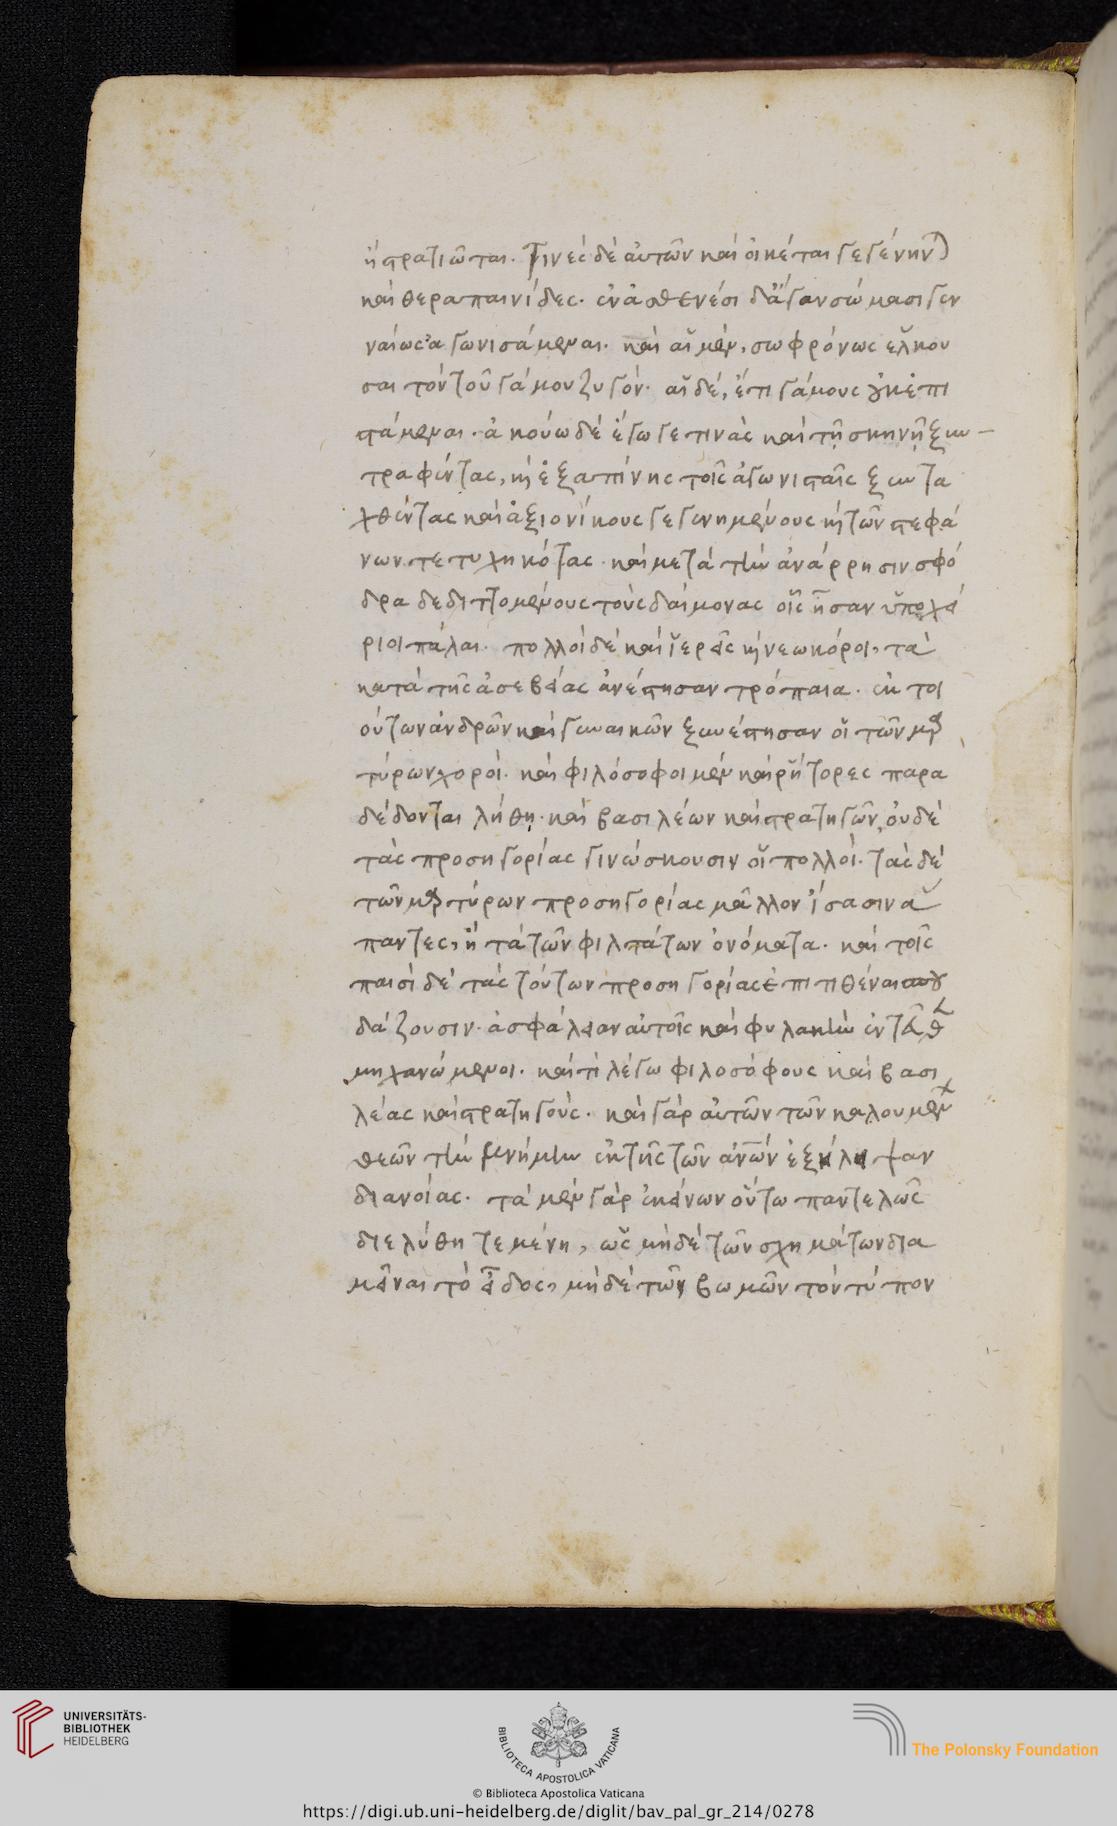 ἢ στρατιῶται. τινὲς δὲ αὐτῶν καὶ οἰκέται γεγένην(ται)
καὶ θεραπαινίδες. ἐν ἀσθενέσι δ' ἄγαν σώμασι γεν
ναίως ἀγωνισάμεναι. καὶ αἳ μὲν, σωφρόνως ἕλκου
σαι τὸν τοῦ γάμου ζυγόν. αἳ δέ, ἔτι γάμους οὐκ ἐπι
στάμεναι. ἀκούω δὲ ἔγωγέ τινας καὶ τῇ σκηνῇ ξυν
τραφέντας, κὴ ἐξαπίνης τοῖς ἀγωνισταῖς ξυντα
χθέντας καὶ ἀξιονίκους γεγενημένους κὴ τῶν στεφά
νων τετυχηκότας. καὶ μετὰ τὴν ἀνάρρησιν σφό
δρα δεδιττομένους τοὺς δαίμονας οἷς ἦσαν ὑποχεί
ριοι πάλαι. πολλοὶ δὲ καὶ ἱερεῖς κὴ νεωκόροι, τὰ
κατὰ τῆς ἀσεβείας ἀνέστησαν τρόπαια. ἐκ τοι
ούτων ἀνδρῶν καὶ γυναικῶν ξυνέστησαν οἱ τῶν μαρ
τύρων χοροί. καὶ φιλόσοφοι μὲν καὶ ῥήτορες παρα
δέδονται λήθῃ. καὶ βασιλέων καὶ στρατηγῶν, οὐδὲ
τὰς προσηγορίας γινώσκουσιν οἱ πολλοί. τὰς δὲ
τῶν μαρτύρων προσηγορίας μᾶλλον ἴσασιν ἅ
παντες, ἢ τὰ τῶν φιλτάτων ὀνόματα. καὶ τοῖς
παισὶ δὲ τὰς τούτων προσηγορίας ἐπιτιθέναι σπου
δάζουσιν. ἀσφάλειαν αὐτοῖς καὶ φυλακὴν ἐντεῦθεν
μηχανώμενοι. καὶ τί λέγω φιλοσόφους καὶ βασι
λέας καὶ στρατηγούς. καὶ γὰρ αὐτῶν τῶν καλουμένων
θεῶν τὴν μνήμην ἐκ τῆς τῶν ἀν(θρώπ)ων ἐξήλειψαν
διανοίας. τὰ μὲν γὰρ ἐκείνων οὕτω παντελῶς
διελύθη τεμένη, ὡς μηδὲ τῶν σχημάτων δια
μεῖναι τὸ εἶδος, μηδὲ τῶν βωμῶν τὸν τύπον
UNIVERSITÄTS-
BIBLIOTHEK
HEIDELBERG
BIBLIOTECA APOSTOLICA VATICANA
The Polonsky Foundation
© Biblioteca Apostolica Vaticana
https://digi.ub.uni-heidelberg.de/diglit/bav_pal_gr_214/0278